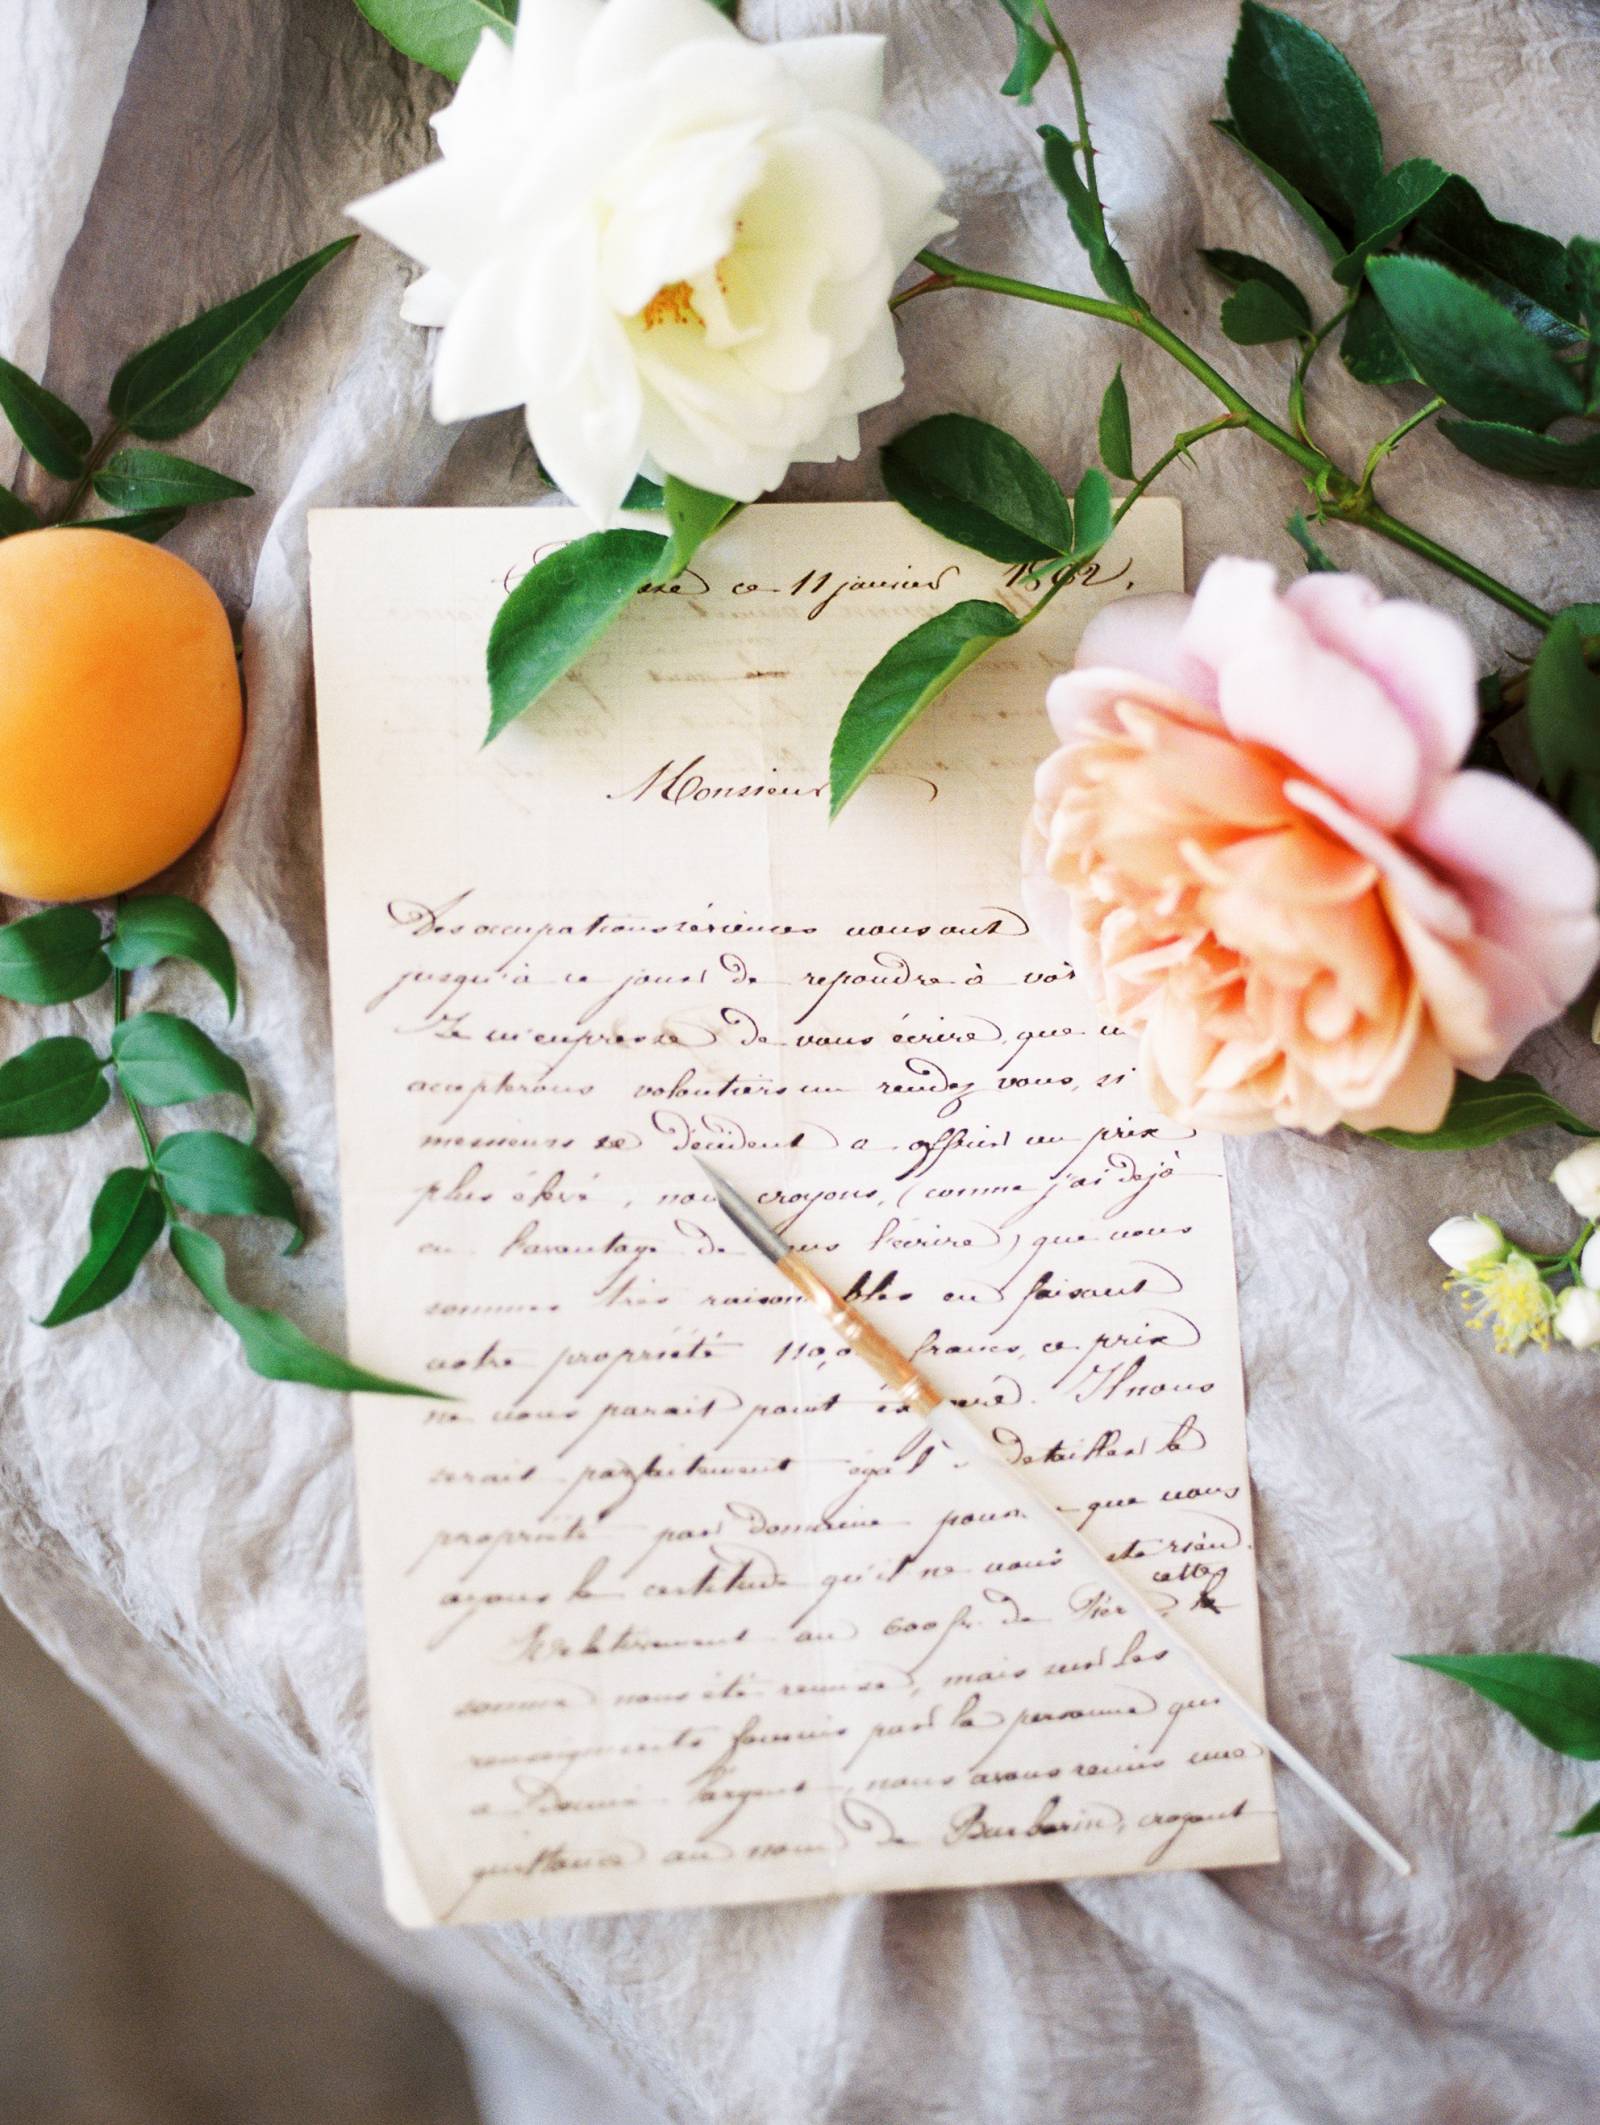 ce 11 janvier 1862.
Monsieur
Des occupations sérieuses nous ont
jusqu'à ce jour de repondre à vos
Je m'empresse de vous écrire, que n
accepterons volontiers un rendez vous, si
messieurs se décident a offrir un prix
plus élevé, nous croyons, (comme j'ai dejà
eu l'avantage de vous l'écrire) que nous
sommes très raisonnables en faisant
notre propriété 110,0 francs, ce prix
ne nous parait point ex eré. Il nous
serait parfaitement égal detailler la
propriété par Domaine pourvu que nous
ayons la certitude qu'il ne nous reste rien.
Relativement au 600 fr. de cette
somme nous été remise, mais sur les
renseignements fournis par la personne qui
a l'argent, nous avons remis une
quittance au nom de Barbarin, croyant